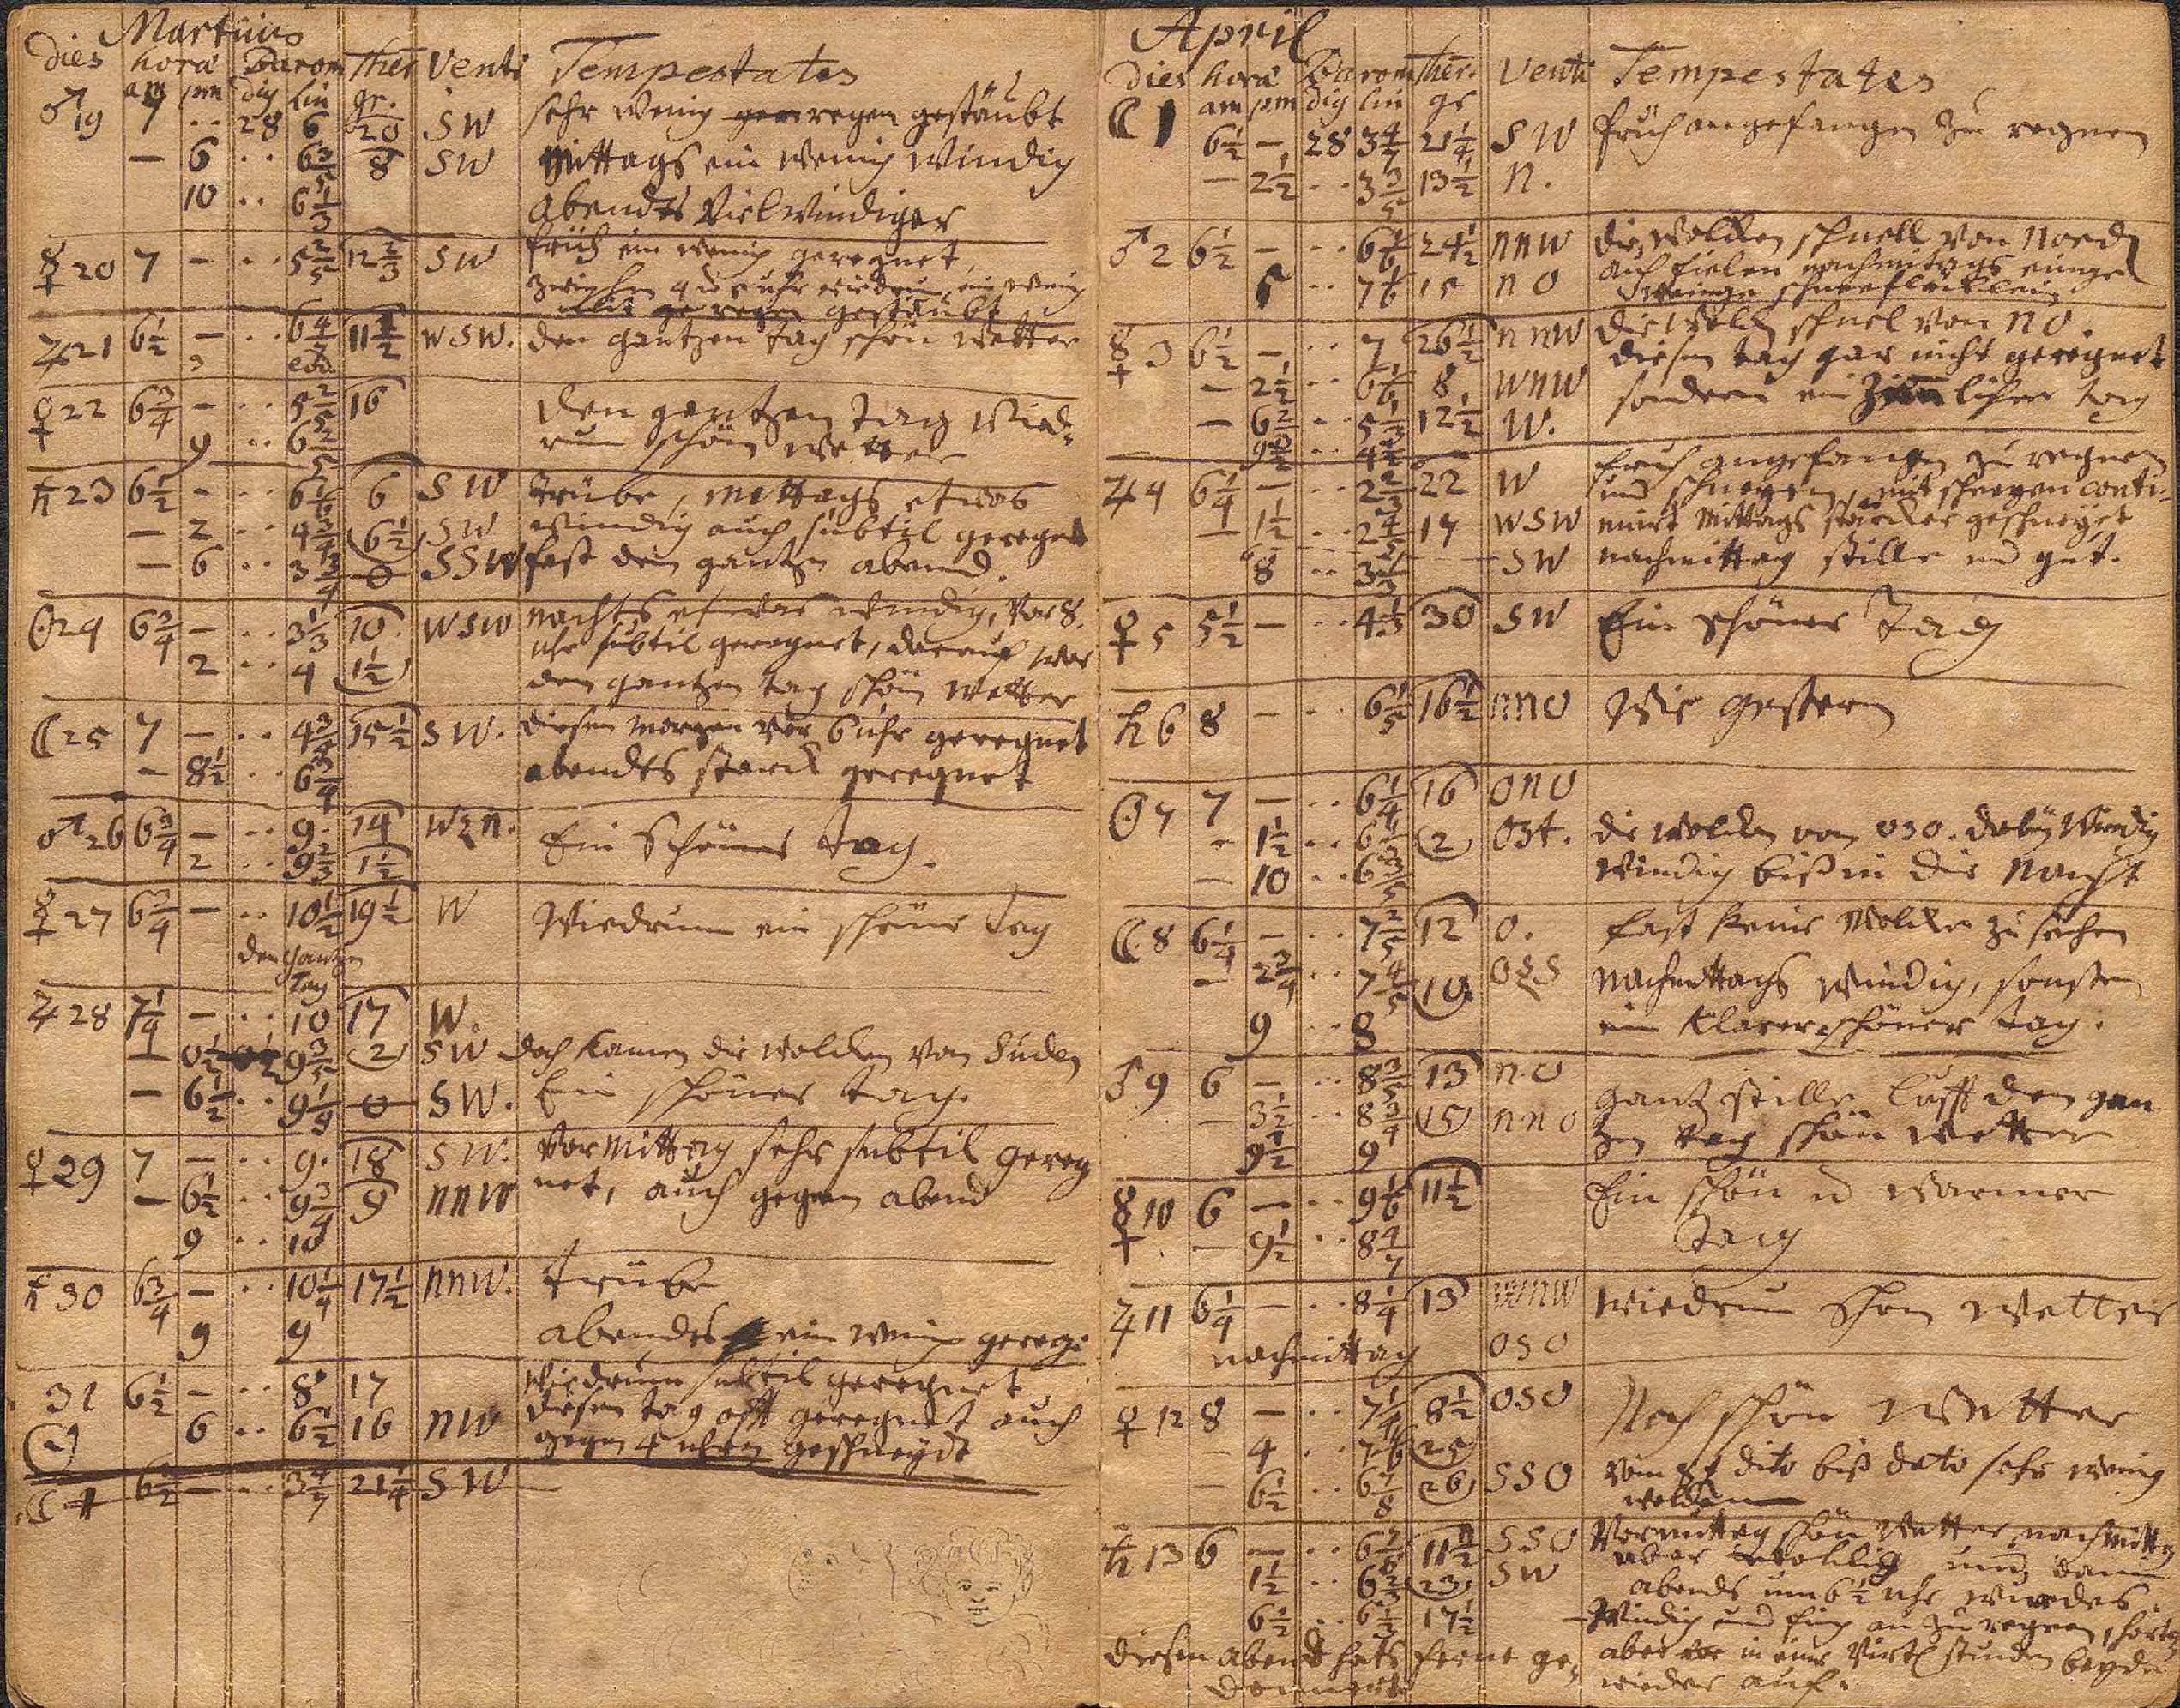 Martius
dies hora Barom Ther Venti Tempestates
am pm dig lin gr.
♂ 19 7 .. 28 6 20 SW sehr wenig regen gestäubt
— 6 .. 6 3/5 8 SW Mittags ein wenig windig
10 .. 6 1/3 abendts viel windiger
☿ 20 7 — .. 5 2/5 12 2/3 SW früh ein wenig geregnet,
zwischen 4 u 5 uhr wiedrum ein wenig
gestäubt
♃ 21 6 1/2 — .. 6 4/5 11 1/2 WSW. den gantzen tag schön wetter
♀ 22 6 3/4 — .. 5 2/5 16 den gantzen Tag wied-
9 .. 6 2/5 rum schön wetter
♄ 23 6 1/2 — .. 6 1/6 6 SW Trübe, Mittags etwas
— 2 .. 4 3/4 6 1/2 SW windig auch subtil geregnet
— 6 .. 3 3/4 0 SSW fast den gantzen abend.
☉ 24 6 3/4 — .. 3 1/3 10. WSW nachts etwas windig, vor 8.
2 .. 4 1 1/2 uhr subtil geregnet, darauf war
den gantzen tag schön wetter
☾ 25 7 — .. 4 3/4 15 1/2 SW. diesen morgen vor 6 uhr geregnet
— 8 1/2 .. 6 3/4 abendts starck geregnet
♂ 26 6 3/4 — .. 9. 14 WzN. Ein Schöner tag.
2 .. 9 2/3 1 1/2
☿ 27 6 3/4 — .. 10 1/2 19 1/2 W Wiedrum ein schöner tag
den gantzen
Tag
♃ 28 7 1/4 — .. 10 17 W.
— 0 1/2 9 3/5 2 SW doch kamen die wolcken von Süden
— 6 1/2 .. 9 1/9 0 SW. Ein schöner tag.
♀ 29 7 — .. 9. 18 SW. Vormittag sehr subtil gereg
— 6 1/2 .. 9 3/4 9 NNW net, auch gegen abend
9 .. 10
♄ 30 6 3/4 — .. 10 1/4 17 1/2 NNW. Trübe
9 9 abendes ein wenig gereg:
31 6 1/2 — .. 8 17 wiedrum subtil geregnet
☉ 6 .. 6 1/2 16 NW diesen tag offt geregnet auch
gegen 4 uhren geschneydt
☾ 1 6 1/2 — .. 3 4/7 21 1/4 SW
April
dies hora Barom Ther. Venti Tempestates
am pm dig lin gr
☾ 1 6 1/2 — 28 3 4/7 21 1/4 SW früh angefangen zu regnen
— 2 1/2 .. 3 3/5 13 1/2 N.
♂ 2 6 1/2 — .. 6 1/6 24 1/2 NNW die wolcken schnell von Nord
5 .. 7 1/6 15 NO auch fielen nachmittags einige
wenige schneeflöcklein
☿ 3 6 1/2 — .. 7 26 1/2 NNW die wolck schnel von NO.
— 2 1/2 .. 6 1/6 8 WNW diesen tag gar nicht geregnet
— 6 2 .. 5 1/3 12 1/2 W. sondern ein ziemlicher tag
♃ 4 6 1/4 — .. 2 2/3 22 W früh angefangen zu regnen
und schneyen, mit schneyen conti-
— 1 1/2 .. 2 4/5 17 WSW nuirt Mittags stärcker geschneyet
8 .. 3 1/3 SW nachmittag stille und gut.
♀ 5 5 1/2 — .. 4 1/3 30 SW Ein schöner Tag
♄ 6 8 — .. 6 1/5 16 1/2 NNO Wie gestern
☉ 7 7 — .. 6 1/4 16 ONO
— 1 1/2 .. 6 2 Ost. die wolcken vom OSO. dabey windig
— 10 .. 6 3/5 windig biß in die Nacht
☾ 8 6 1/4 — .. 7 2/5 12 O. fast keine Wolcken zu sehen
— 2 3/4 .. 7 4/5 10. OzS nachmittags windig, sonsten
9 .. 8 ein klarer schöner tag.
♂ 9 6 — .. 8 3/5 13 N.O Gantz stille lufft den gan
— 3 1/2 .. 8 3/4 15 NNO zen tag schön wetter
9 1/2 9
☿ 10 6 — .. 9 1/6 11 1/2 Ein schön und warmer
— 9 1/2 .. 8 4/7 tag
♃ 11 6 1/4 — .. 8 1/4 13 WNW wiedrum schön wetter
nachmittag OSO
♀ 12 8 — .. 7 1/4 8 1/2 OSO Noch schön wetter
— 4 .. 25 vom dito biß dato sehr wenig
— 6 1/2 .. 6 7/8 26 SSO wolcken
♄ 13 6 — .. 11 1/2 SSO Vormittag schön wetter, nachmittag
1 1/2 .. 23 SW aber wolckig und dann
6 1/2 .. 17 1/2 abends um 6 1/2 uhr wurdes
windig und fing an zu regnen, hörte
diesen abend hats ferne ge- aber in eine viertl stunden beydes
donnert wieder auf.